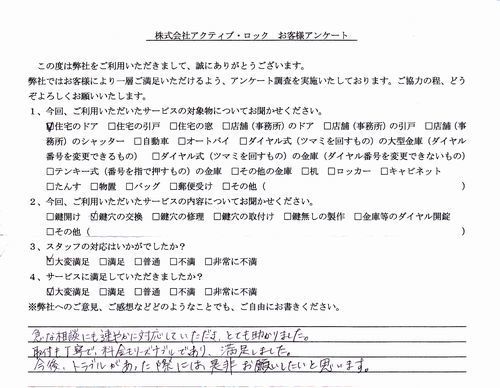 株式会社アクティブ・ロック お客様アンケート
この度は弊社をご利用いただきまして、誠にありがとうございます。
弊社ではお客様により一層ご満足いただけるよう、アンケート調査を実施いたしております。ご協力の程、どう
ぞよろしくお願いいたします。
1、今回、ご利用いただいたサービスの対象物についてお聞かせください。
☑住宅のドア □住宅の引戸 □住宅の窓 □店舗(事務所)のドア □店舗(事務所)の引戸 □店舗(事
務所)のシャッター □自動車 □オートバイ □ダイヤル式(ツマミを回すもの)の大型金庫(ダイヤル
番号を変更できるもの) □ダイヤル式(ツマミを回すもの)の金庫(ダイヤル番号を変更できないもの)
□テンキー式(番号を指で押すもの)の金庫 □その他の金庫 □机 □ロッカー □キャビネット
□たんす □物置 □バッグ □郵便受け □その他( )
2、今回、ご利用いただいたサービスの内容についてお聞かせください。
□鍵開け ☑鍵穴の交換 □鍵穴の修理 □鍵穴の取付け □鍵無しの製作 □金庫等のダイヤル開錠
□その他( )
3、スタッフの対応はいかがでしたか?
☑大変満足 □満足 □普通 □不満 □非常に不満
4、サービスに満足していただきましたか?
☑大変満足 □満足 □普通 □不満 □非常に不満
※弊社へのご意見、ご感想などどのようなことでも、ご自由にお書きください。
急な相談にも速やかに対応していただき、とても助かりました。
取付も丁寧で、料金もリーズナブルであり、満足しました。
今後、トラブルがあった際には是非お願いしたいと思います。